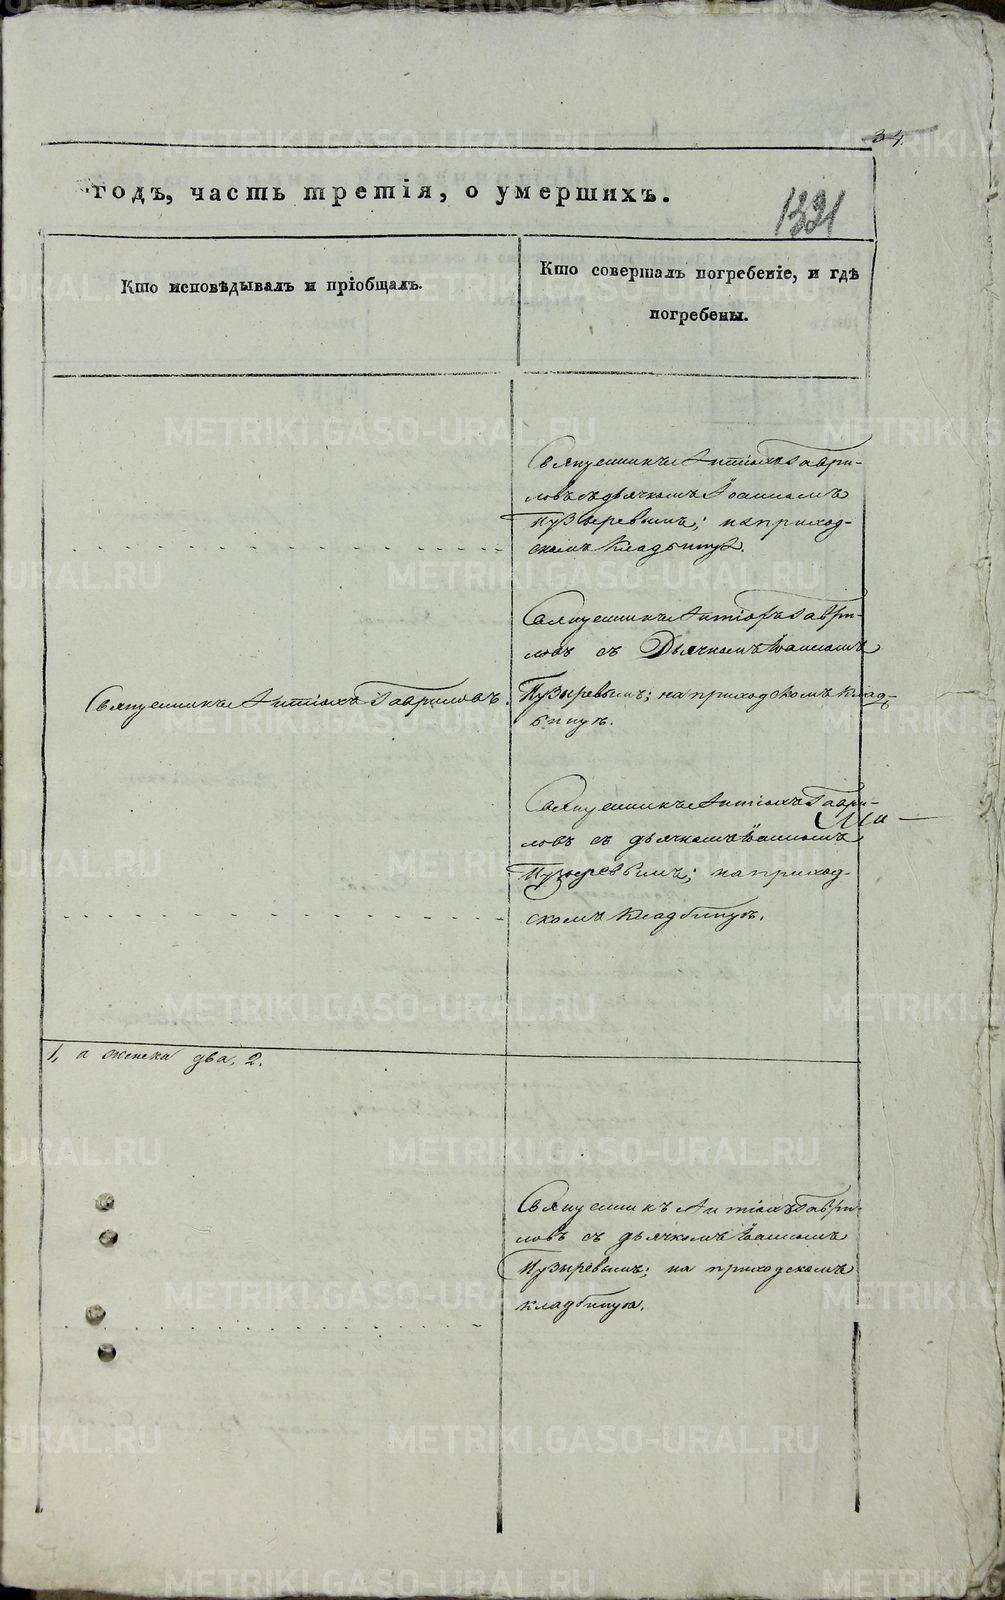 34
годъ, часть третія, о умершихъ.
1321
Кто исповѣдывалъ и пріобщалъ.
Кто совершалъ погребеніе, и гдѣ
погребены.
Священникъ Антіохъ Гаври-
ловъ съ дьячкомъ Іоанномъ
Пузыревымъ; на приход-
скомъ Кладбищѣ.
Священникъ Антіохъ Гаври-
ловъ съ Дьячкомъ Іоанномъ
Священникъ Антіохъ Гавриловъ.
Пузыревымъ; на приходскомъ Клад-
бищѣ.
Священникъ Антіохъ Гаври-
ловъ съ дьячкомъ Іоанномъ
Пузыревымъ; на приход-
скомъ Кладбищѣ.
1, а женска два, 2.
Священникъ Антіохъ Гаври-
ловъ съ дьячкомъ Іоанномъ
Пузыревымъ; на приходскомъ
кладбищѣ.
METRIKI.GASO-URAL.RU